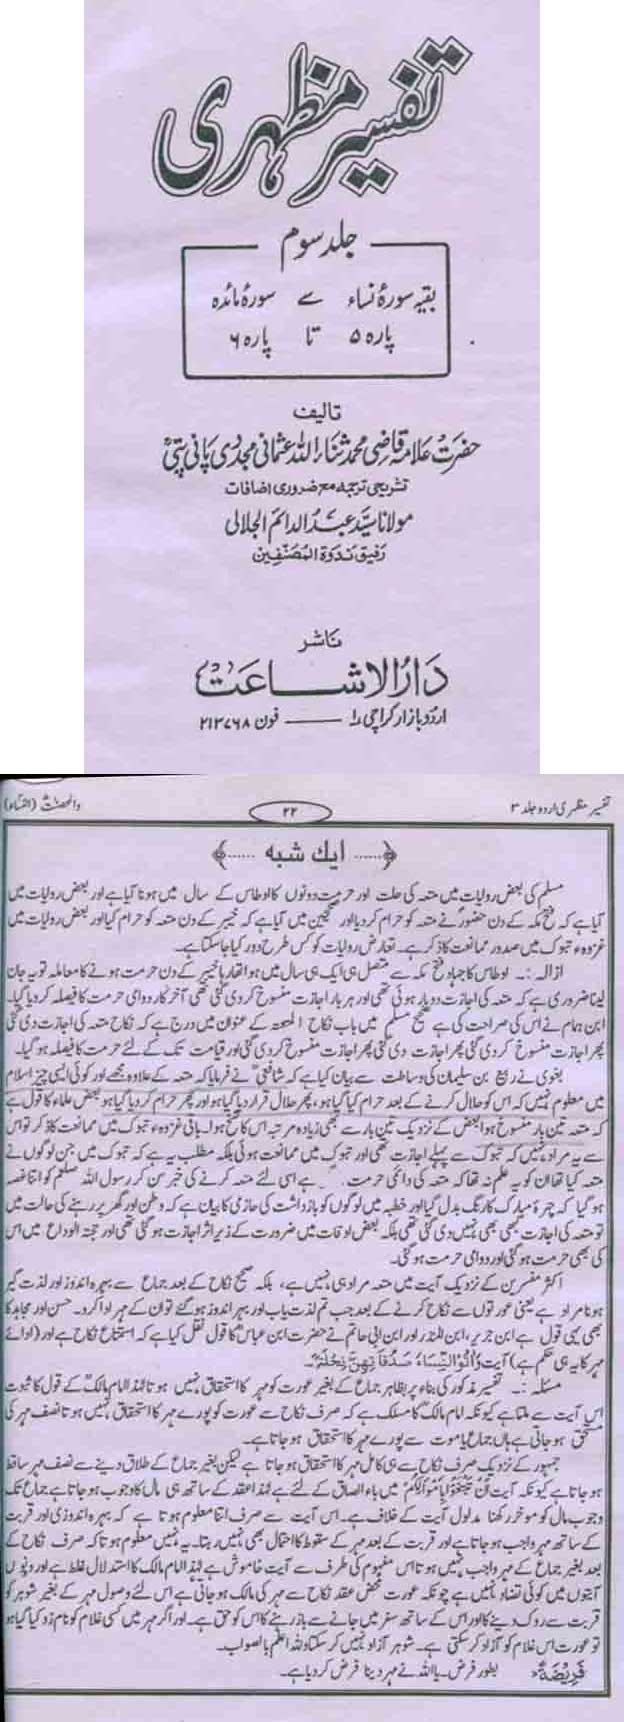 تفسیر مظہری
جلد سوم
بقیہ سورۂ نساء سے سورۂ مائدہ
پارہ ۵ تا پارہ ۶
تالیف
حضرت علامہ قاضی محمد ثناء اللہ عثمانی مجددی پانی پتیؒ
تشریحی ترجمہ مع ضروری اضافات
مولانا سید عبد الدائم الجلالی
رفیق ندوۃ المصنفین
ناشر
دار الاشاعت
اردو بازار کراچی ۱ ــــ فون ۲۱۳۷۶۸
تفسیر مظہری اردو جلد ۳
۲۲
والمحصنٰت (النساء)
﴿...... ایک شبہ ......﴾
مسلم کی بعض روایات میں متعہ کی حلت اور حرمت دونوں کا اوطاس کے سال میں ہونا آیا ہے اور بعض روایات میں
آیا ہے کہ فتح مکہ کے دن حضورؐ نے متعہ کو حرام کر دیا اور صحیحین میں آیا ہے کہ خیبر کے دن متعہ کو حرام کیا اور بعض روایات میں
غزوہ تبوک میں صدور ممانعت کا ذکر ہے۔ تعارض روایات کو کس طرح دور کیا جا سکتا ہے۔
ازالہ :۔ اوطاس کا جہاد فتح مکہ سے متصل ہی ایک ہی سال میں ہوا تھا رہا خیبر کے دن حرمت ہونے کا معاملہ تو یہ جان
لینا ضروری ہے کہ متعہ کی اجازت دوبار ہوئی تھی اور ہر بار اجازت منسوخ کر دی گئی تھی آخر کار دوامی حرمت کا فیصلہ کر دیا گیا۔
ابن ہمام نے اس کی صراحت کی ہے صحیح مسلم میں باب نکاح المتعتہ کے عنوان میں درج ہے کہ نکاح متعہ کی اجازت دی گئی
پھر اجازت منسوخ کر دی گئی پھر اجازت دی گئی پھر اجازت منسوخ کر دی گئی اور قیامت تک کے لئے حرمت کا فیصلہ ہو گیا۔
بغوی نے ربیع بن سلیمان کی وساطت سے بیان کیا ہے کہ شافعیؒ نے فرمایا کہ متعہ کے علاوہ مجھے اور کوئی ایسی چیز اسلام
میں معلوم نہیں کہ اس کو حلال کرنے کے بعد حرام کیا گیا ہو، پھر حلال قرار دیا گیا ہو اور پھر حرام کر دیا گیا ہو بعض علماء کا قول ہے
کہ متعہ تین بار منسوخ ہوا بعض کے نزدیک تین بار سے بھی زیادہ مرتبہ اس کا نسخ ہوا۔ باقی غزوہ تبوک میں ممانعت کا ذکر تو اس
سے یہ مراد نہیں کہ تبوک سے پہلے اجازت تھی اور تبوک میں ممانعت ہوئی بلکہ مطلب یہ ہے کہ تبوک میں جن لوگوں نے
متعہ کیا تھا ان کو یہ علم نہ تھا کہ متعہ کی دائمی حرمت ہے اسی لئے متعہ کرنے کی خبر سن کر رسول اللہ صلعم کو اتنا غصہ
ہو گیا کہ چہرۂ مبارک کا رنگ بدل گیا اور خطبہ میں لوگوں کو بازداشت کی حازمی کا بیان ہے کہ وطن اور گھر پر رہنے کی حالت میں
تو متعہ کی اجازت کبھی بھی نہیں دی گئی تھی بلکہ بعض اوقات میں ضرورت کے زیر اثر اجازت ہو گئی تھی اور حجۃ الوداع میں اس
کی بھی حرمت ہو گئی اور دوامی حرمت ہو گئی۔
اکثر مفسرین کے نزدیک آیت میں متعہ مراد ہی نہیں ہے، بلکہ صحیح نکاح کے بعد جماع سے بہرہ اندوز اور لذت گیر
ہونا مراد ہے یعنی عورتوں سے نکاح کرنے کے بعد جب تم لذت یاب اور بہرہ اندوز ہو گئے تو ان کے مہر ادا کرو۔ حسن اور مجاہد کا
بھی یہی قول ہے ابن جریر، ابن المنذر اور ابن ابی حاتم نے حضرت ابن عباسؓ کا قول نقل کیا ہے کہ استمتاع نکاح ہے اور (ادائے
مہر کا یہ ہی حکم ہے) آیت وَاٰتُوا النِّسَاءَ صَدُقَاتِهِنَّ نِحْلَةً۔
مسئلہ :۔ تفسیر مذکور کی بناء پر بظاہر جماع کے بغیر عورت کو مہر کا استحقاق نہیں ہوتا لہٰذا امام مالکؒ کے قول کا ثبوت
اس آیت سے ملتا ہے کیونکہ امام مالکؒ کا مسلک ہے کہ صرف نکاح سے عورت کو پورے مہر کا استحقاق نہیں ہوتا نصف مہر کی
مستحق ہو جاتی ہے ہاں جماع یا موت سے پورے مہر کا استحقاق ہو جاتا ہے۔
جمہور کے نزدیک صرف نکاح سے ہی کامل مہر کا استحقاق ہو جاتا ہے لیکن بغیر جماع کے طلاق دینے سے نصف مہر ساقط
ہو جاتا ہے کیونکہ آیت اَنْ تَبْتَغُوْا بِاَمْوَالِكُمْ میں باء الصاق کے لئے ہے لہٰذا عقد کے ساتھ ہی مال کا وجوب ہو جاتا ہے جماع تک
وجوب مال کو موخر رکھنا مدلول آیت کے خلاف ہے۔ اس آیت سے صرف اتنا معلوم ہوتا ہے کہ بہرہ اندوزی اور قربت
کے ساتھ مہر واجب ہو جاتا ہے اور قربت کے بعد مہر کے سقوط کا احتمال بھی نہیں رہتا۔ یہ نہیں معلوم ہوتا کہ صرف نکاح کے
بعد بغیر جماع کے مہر واجب نہیں ہوتا اس مفہوم کی طرف سے آیت خاموش ہے لہٰذا امام مالک کا استدلال غلط ہے اور دونوں
آیتوں میں کوئی تضاد نہیں ہے چونکہ عورت محض عقد نکاح سے مہر کی مالک ہو جاتی ہے اس لئے وصول مہر کے بغیر شوہر کو
قربت سے روک دینے کا اور اس کے ساتھ سفر میں جانے سے باز رہنے کا اس کو حق ہے۔ اور اگر مہر میں کسی غلام کو نامزد کیا گیا ہو
تو عورت اس غلام کو آزاد کر سکتی ہے۔ شوہر آزاد نہیں کر سکتا واللہ اعلم بالصواب۔
فَرِيْضَةً بطور فرض۔ یا اللہ نے مہر دینا فرض کر دیا ہے۔